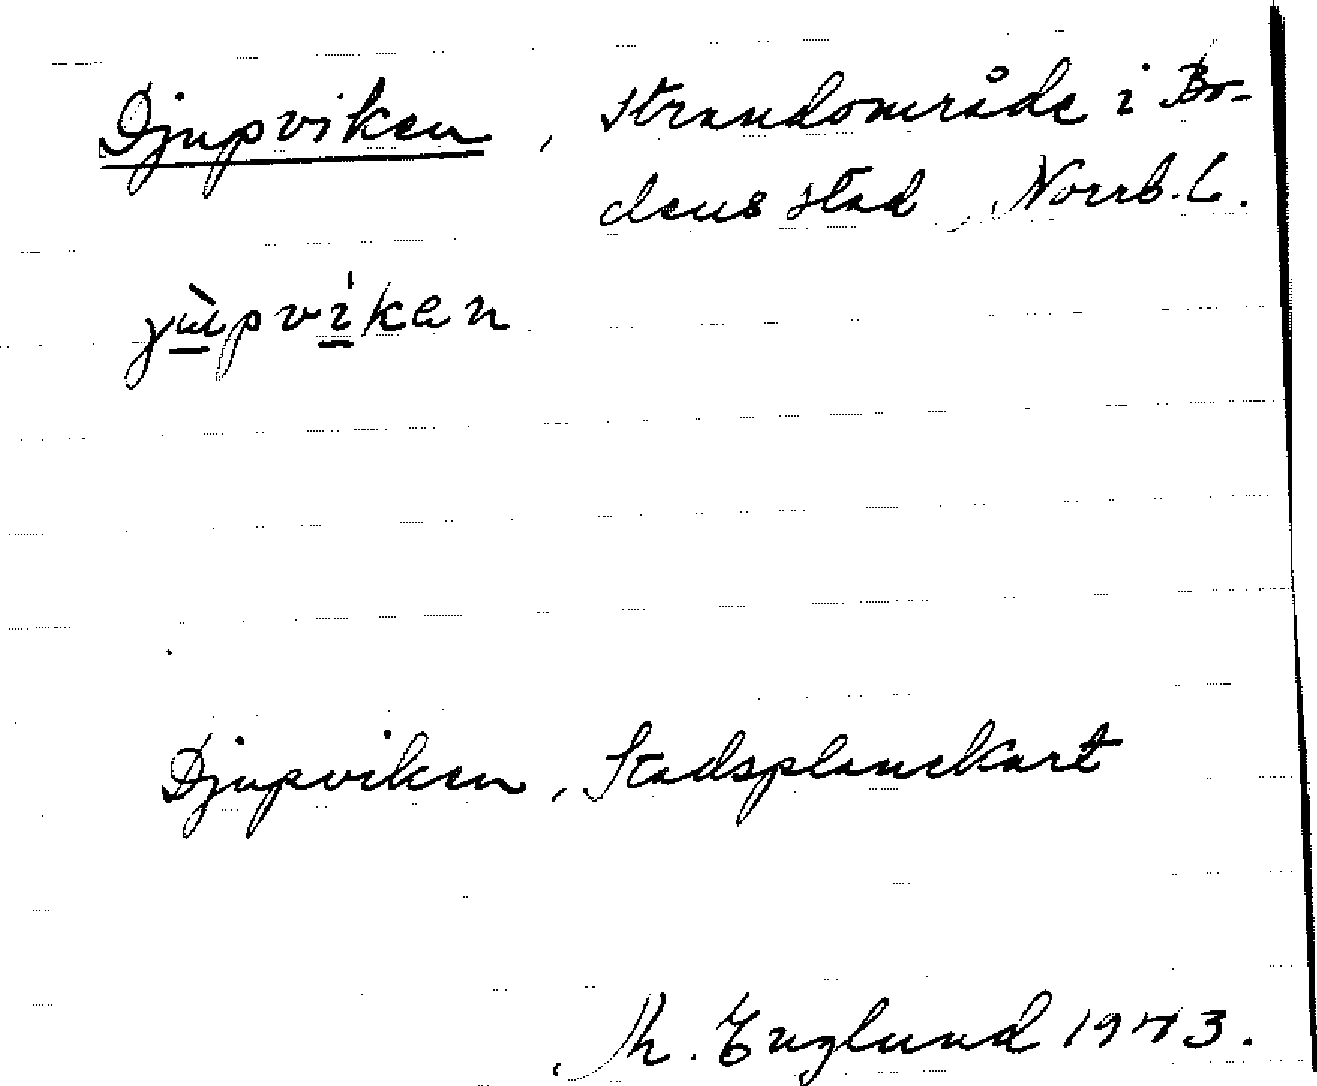 Djupviken, Strandområde i Bo-
dens stad, Norrb. l.
jùpvíken
Djupviken, Stadsplanekart
Th. Englund 1943.